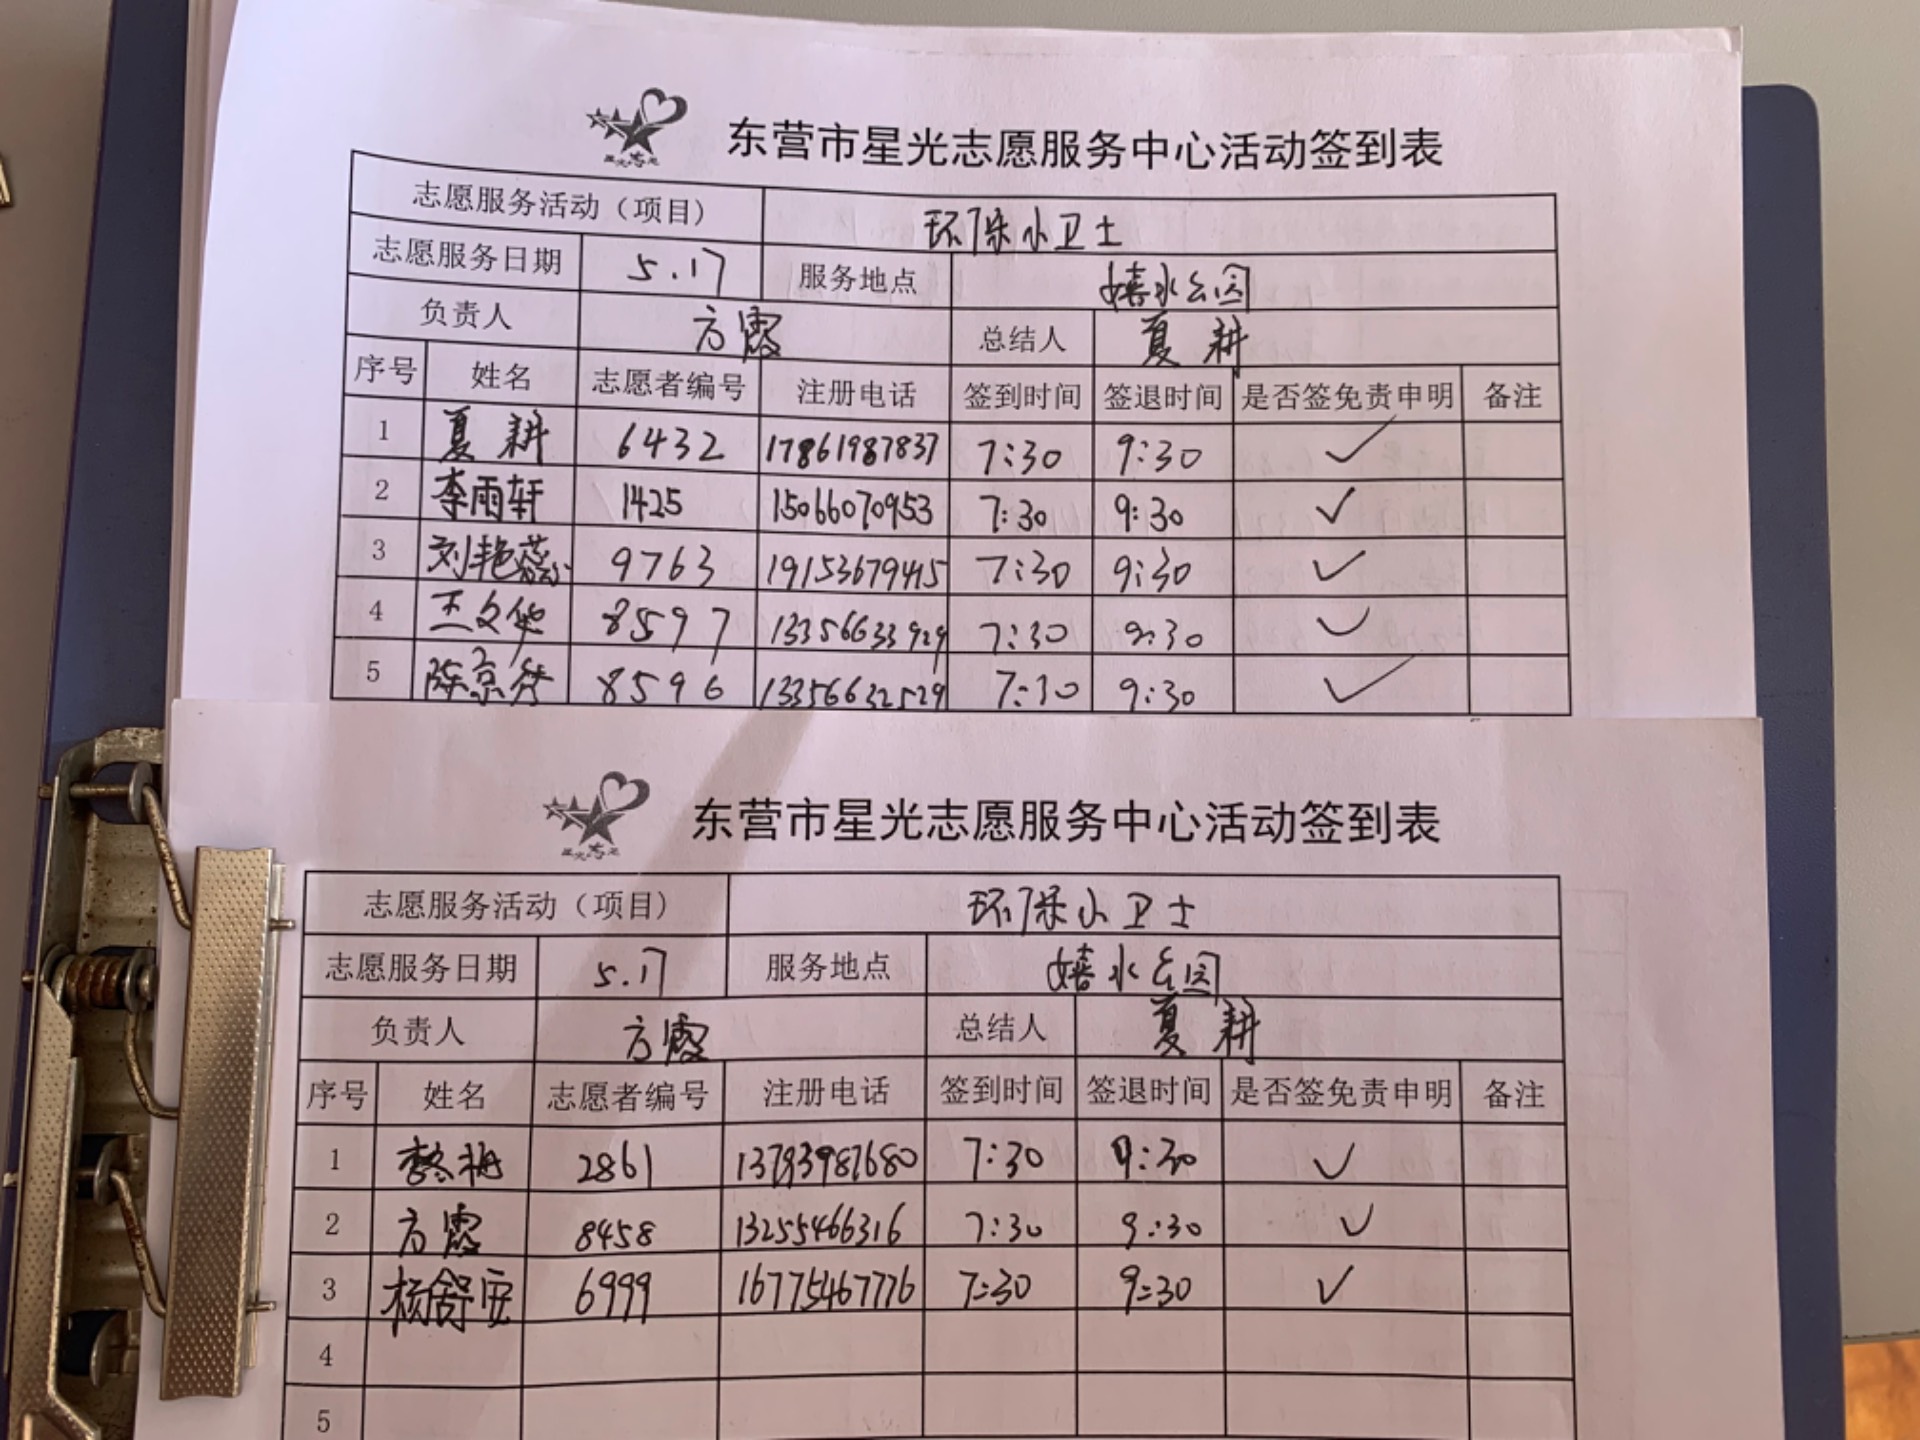 星光志愿
东营市星光志愿服务中心活动签到表
志愿服务活动（项目） 环保小卫士
志愿服务日期 5.17 服务地点 嬉水公园
负责人 方霞 总结人 夏耕
序号 姓名 志愿者编号 注册电话 签到时间 签退时间 是否签免责申明 备注
1 夏耕 6432 17861987837 7:30 9:30 ✓
2 李雨轩 1425 15066070953 7:30 9:30 ✓
3 刘艳蕊 9763 19153679415 7:30 9:30 ✓
4 王文华 8597 13356633929 7:30 9:30 ✓
5 陈京秀 8596 13356632529 7:30 9:30 ✓
星光志愿
东营市星光志愿服务中心活动签到表
志愿服务活动（项目） 环保小卫士
志愿服务日期 5.17 服务地点 嬉水公园
负责人 方霞 总结人 夏耕
序号 姓名 志愿者编号 注册电话 签到时间 签退时间 是否签免责申明 备注
1 2861 13793987680 7:30 9:30 ✓
2 方霞 8458 13255466316 7:30 9:30 ✓
3 杨舒安 6999 16775467776 7:30 9:30 ✓
4
5